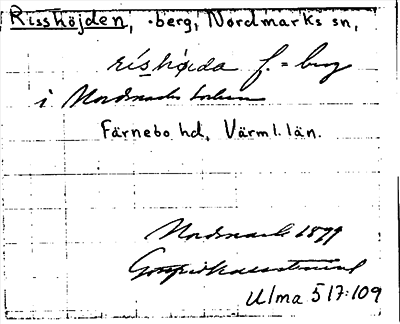 Risshöjden, -berg, Nordmarks sn,
ris̲höida f. = berg
i Nordmarks socken
Färnebo hd, Värml. län.
Nordmark 1899
Ulma 517:109